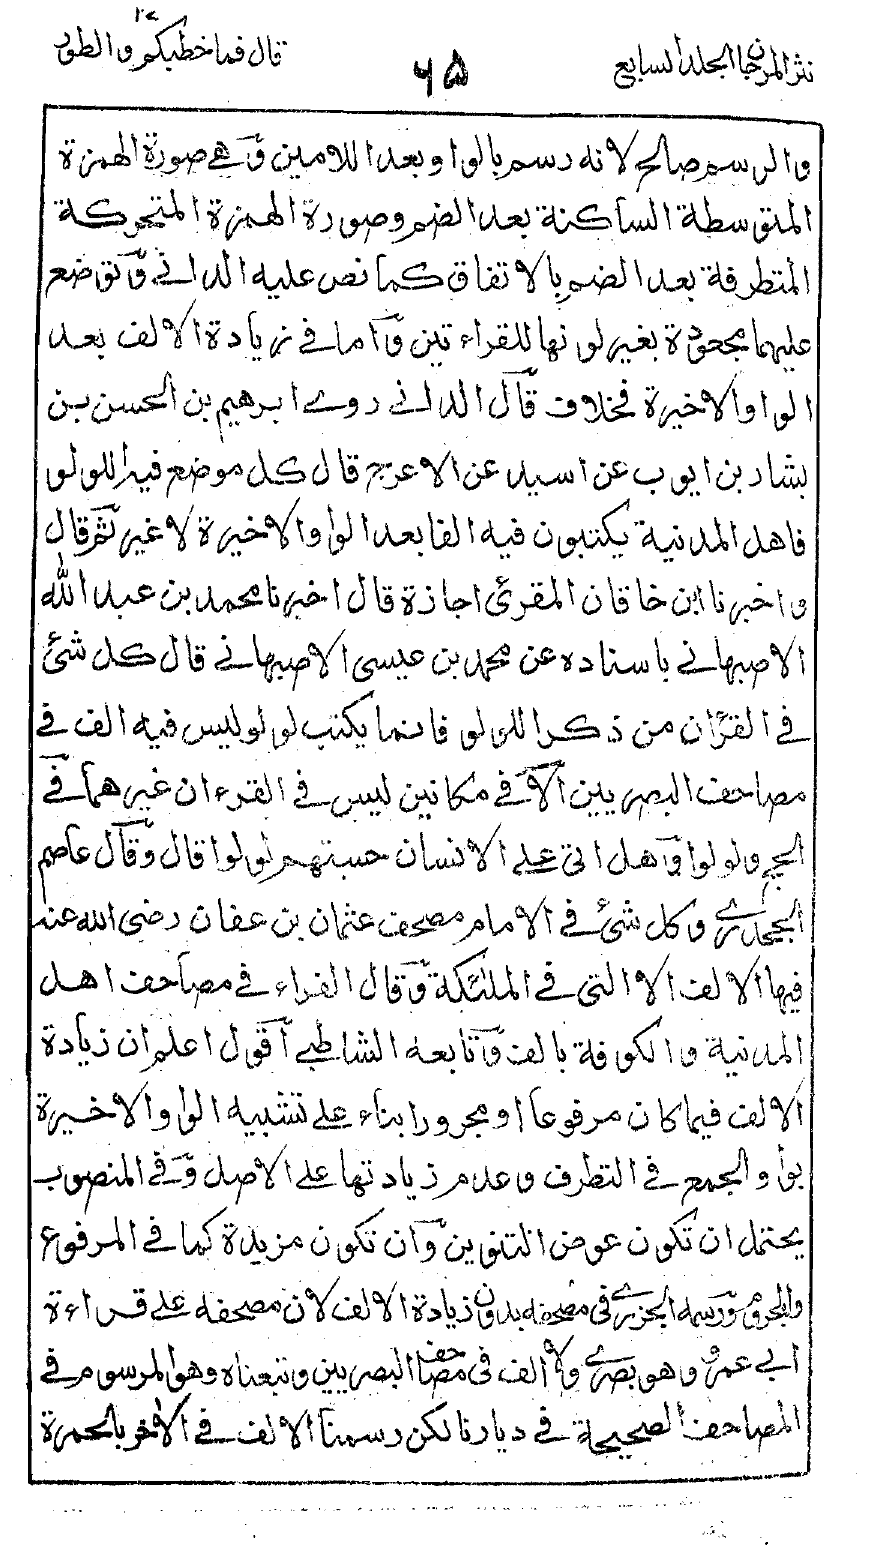 نثر المرجان الجلد السابع
٦٥
قال فما خطبكم ٢٧ والطور
والرسم صالح لانه رسم بالواو بعد اللامين وهے صورة الهمزة
المتوسطة الساكنة بعد الضم وصورة الهمزة المتحركة
المتطرفة بعد الضم بالاتفاق كما نص عليه الدانے وتوضع
عليهما مجعودة بغير لونها للقراءتين واما فے زيادة الالف بعد
الواو الاخيرة فخلاف قال الدانے روے ابرهيم بن الحسن بن
بشار بن ايوب عن اسيد عن الاعرج قال كل موضع فيه اللولو
فاهل المدنية يكتبون فيه الفا بعد الواو الاخيرة لا غير ثم قال
واخبرنا ابن خاقان المقرئ اجازة قال اخبرنا محمد بن عبد الله
الاصبهانے باسناده عن محمد بن عيسى الاصبهانے قال كل شئ
فے القرآن من ذكر اللولو فانما يكتب لولو ليس فيه الف فے
مصاحف البصريين الا فے مكانين ليس فے القرءان غيرهما فے
الحج ولولوا وهل اتى علے الانسان حسبتهم لولوا قال وقال عاصم
الجحدرے وكل شئ فے الامام مصحف عثمان بن عفان رضى الله عنه
فيها الالف الا التى فے الملئكة وقال الفراء فے مصاحف اهل
المدنية والكوفة بالف وتابعه الشاطبے اقول اعلم ان زيادة
الالف فيما كان مرفوعا او مجرورا بناء علے تشبيه الواو الاخيرة
بواو الجمع فے التطرف وعدم زيادتها علے الاصل وفے المنصوب
يحتمل ان تكون عوض التنوين وان تكون مزيدة كما فے المرفوع
والمجرور ورسمه الجزرے فى مصحفه بدون زيادة الالف لان مصحفه علے قراءة
ابے عمرو وهو بصرے ولا الف فى مصاحف البصريين وتبعناه وهو المرسوم فے
المصاحف الصحيحة فے ديارنا لكن رسمنا الالف فے الاخر بالحمرة